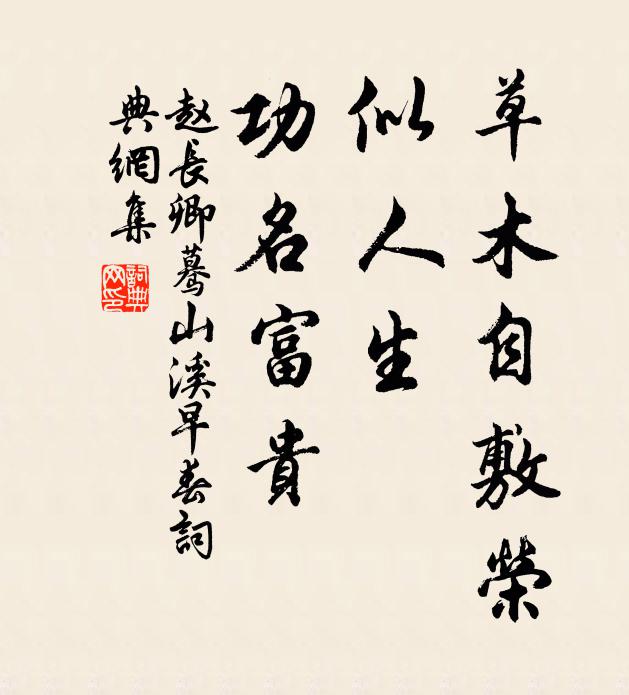 草木自敷榮
似人生
功名富貴
赵長卿蓦山溪早春詞
典網集
詞典网印